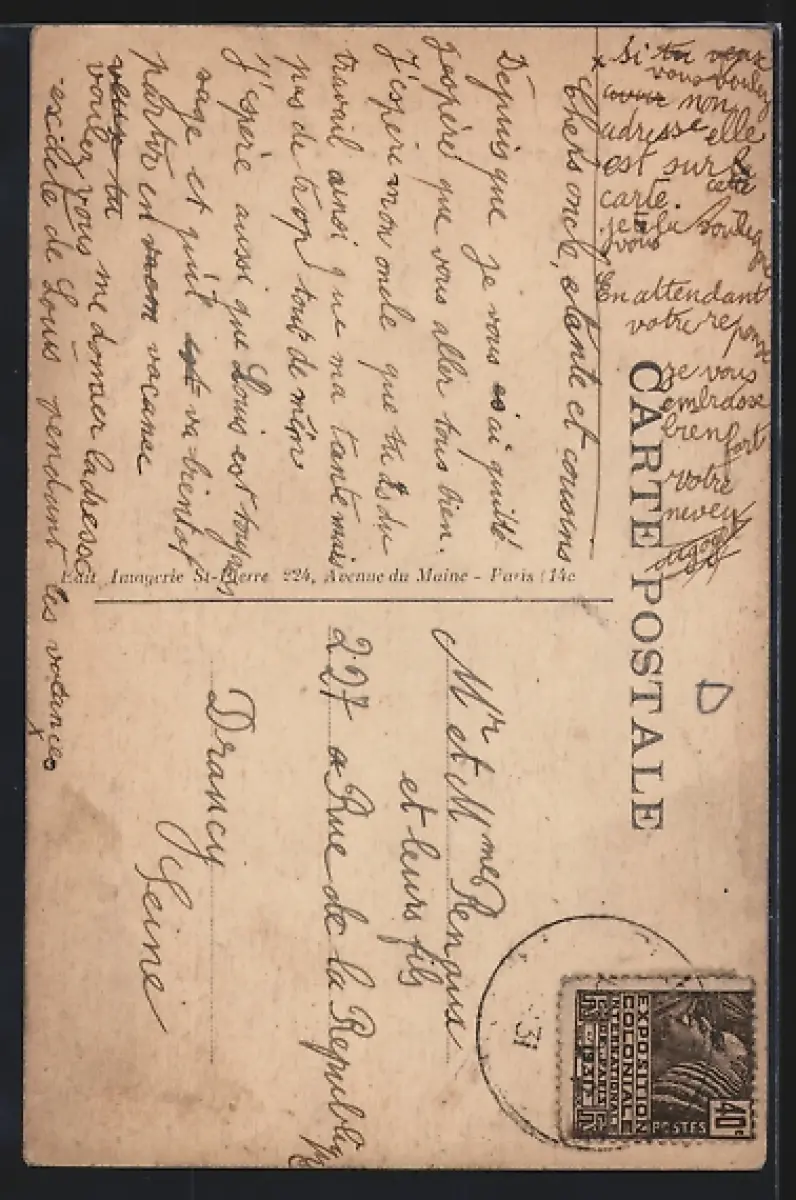 CARTE POSTALE
Chers oncle, etante et cousins
Dépuis que je vous ai quitté
j'espère que vous aller tous bien.
J'espère mon oncle que tu as du
travail ainsi que ma tante mais
pas de trop tout de même
J'espère aussi que Louis est toujours
sage et qu'il est va bientot
partir en vacance
veux tu
voulez vous me donner ladresse
exacte de Louis pendant les vacances
x
x Si tu veux
vous voulez
avoir mon
adresse elle
est sur la
cette
carte.
je la souligne
vous
En attendant
votre reponse
je vous
embrasse
bien fort
votre
neveu
Edit Imagerie St-Pierre 224, Avenue du Maine - Paris (14e
D
Mr et Mme Renoux
et leurs fils
227 a Rue de la Republiq
Drancy
Seine
31
EXPOSITION
COLONIALE
INTERNATIONALE
DE PARIS
1931
POSTES
40c